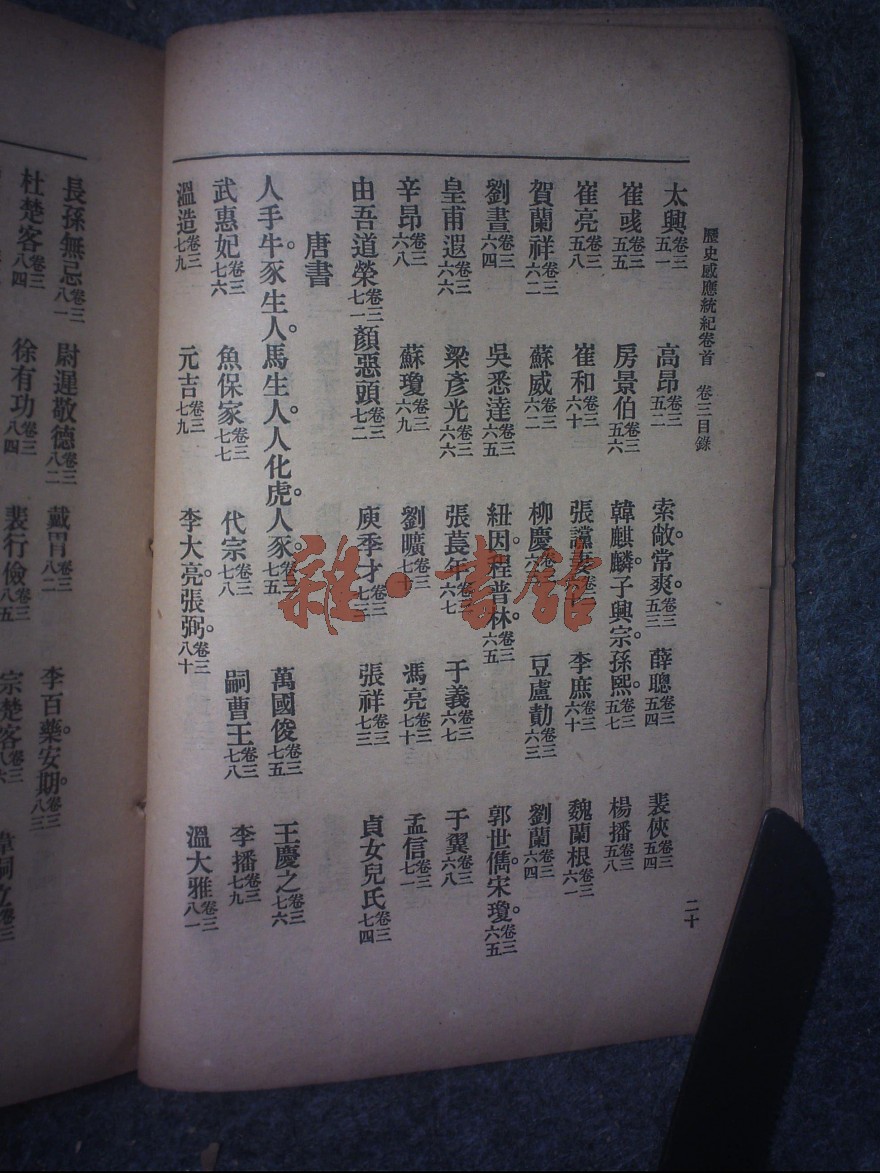 歷史感應統紀卷首　卷三目錄
二十
太興卷三五一　高昂卷三五二　索敞。常爽。卷三五三　薛聰卷三五四　裴俠卷三五四
崔彧卷三五五　房景伯卷三五六　韓麒麟。子興宗。孫熙。卷三五七　楊播卷三五八
崔亮卷三五八　崔和卷三六十　張讜妻　李庶卷三六十　魏蘭根卷三六一
賀蘭祥卷三六二　蘇威卷三六二　柳慶　豆盧勣卷三六三　劉蘭卷三六四
劉晝卷三六四　吳悉達卷三六五　紐因。程普林。卷三六五　郭世儁。宋瓊。卷三六五
皇甫遐卷三六六　梁彥光卷三六六　張萇年卷三六七　于義卷三六七　于翼卷三六八
辛昂卷三六八　蘇瓊卷三六九　劉曠卷三七十　馮亮卷三七十　孟信卷三七一
由吾道榮卷三七一　顏惡頭卷三七二　庾季才卷三七三　張祥卷三七三　貞女兒氏卷三七四
唐書
人手。牛豕生人。馬生人。人化虎。人豕。卷三七五　萬國俊卷三七五　王慶之卷三七六
武惠妃卷三七六　魚保家卷三七七　代宗卷三七八　嗣曹王卷三七八　李播卷三七九
溫造卷三七九　元吉卷三七九　李大亮。張弼。卷三八十　溫大雅卷三八一
長孫無忌卷三八一　尉遲敬德卷三八二　戴冑卷三八二　李百藥。安期。卷三八三
杜楚客卷三八四　徐有功卷三八四　裴行儉卷三八五　宗楚客卷三八六　韋嗣立卷三
雜·書館